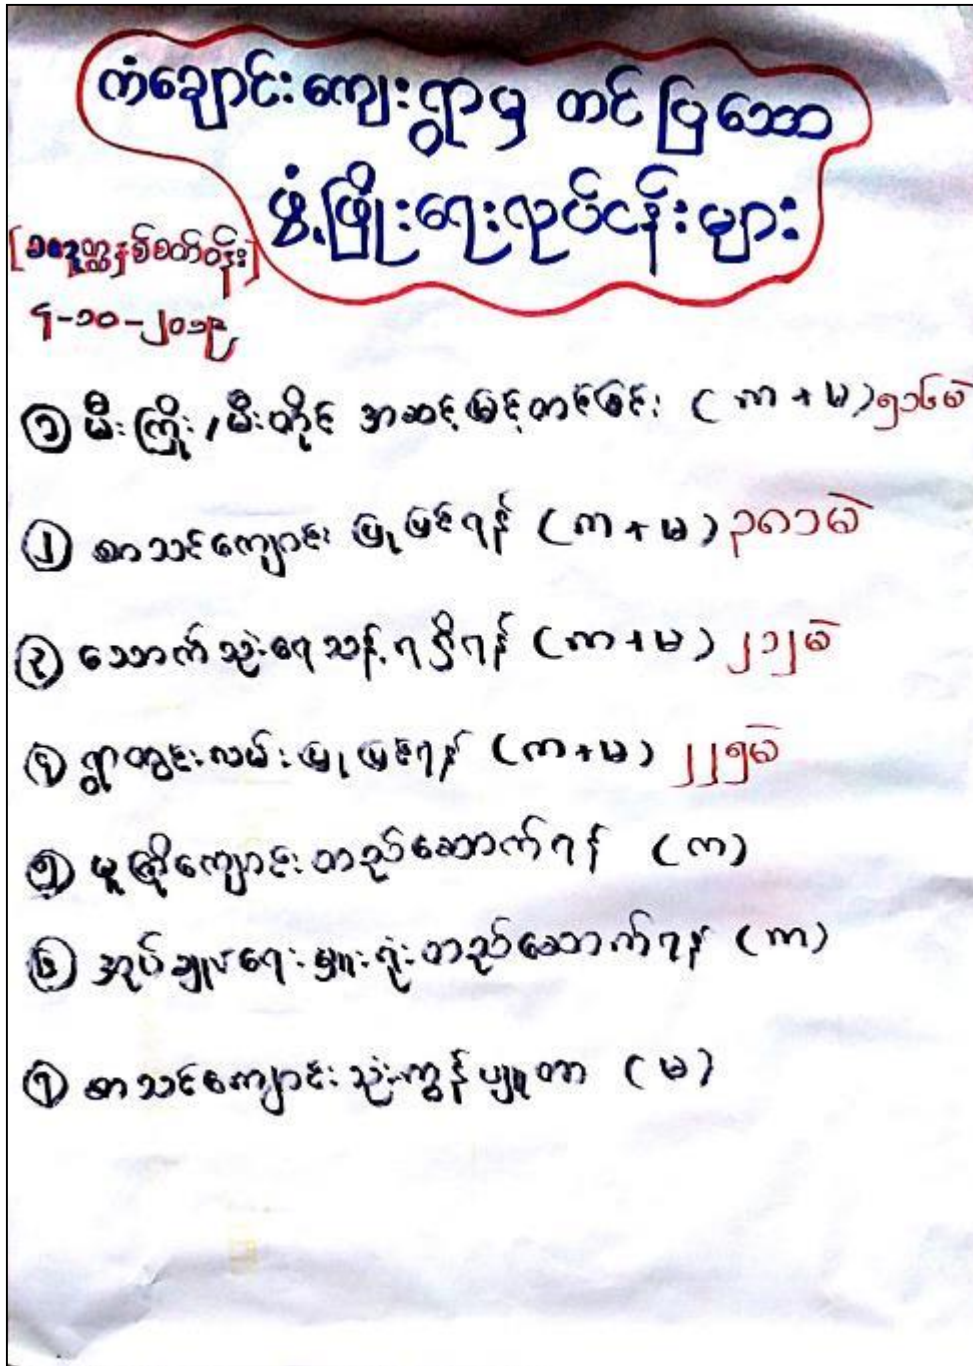 ကံချောင်းကျေးရွာမှ တင်ပြသော
ဖွံ့ဖြိုးရေးလုပ်ငန်းများ
နှစ်စက်ဝန်း]
၄-၁၀-၂၀၁၉
၁ မီးကြိုး/မီးတိုင် အဆင့်မြှင့်တင်ခြင်း (က + မ) ၅၁၆မဲ
၂ စာသင်ကျောင်း ပြုပြင်ရန် (က + မ) ၃၈၁မဲ
၃ သောက်သုံးရေသန့်ရရှိရန် (က+မ) ၂၁၂မဲ
၄ ရွာတွင်းလမ်းပြုပြင်ရန် (က+မ) ၂၂၅မဲ
၅ မူကြိုကျောင်းတည်ဆောက်ရန် (က)
၆ အုပ်ချုပ်ရေးမှူးရုံးတည်ဆောက်ရန် (က)
၇ စာသင်ကျောင်းသုံးကွန်ပျူတာ (မ)